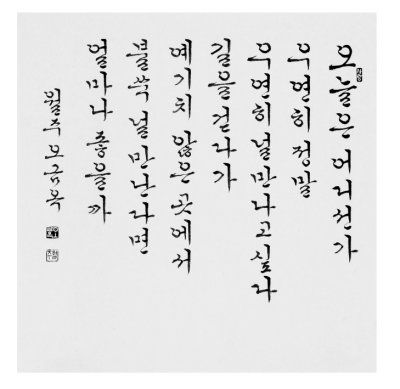 오늘은 어디선가
우연히 정말
우연히 널 만나고 싶다
길을 걷다가
예기치 않은 곳에서
불쑥 널 만난다면
얼마나 좋을까
월주 오금옥